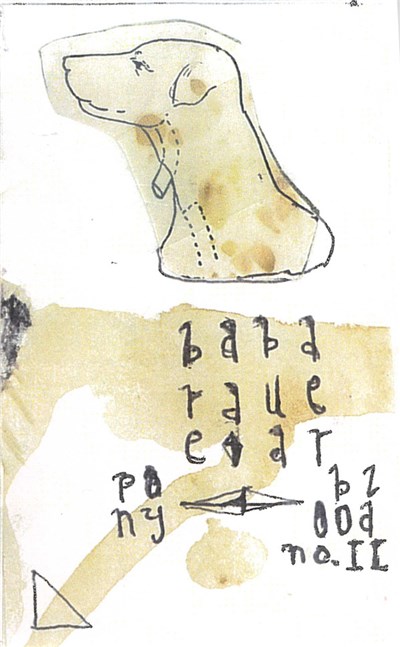 b a b a
r a u e
po
ny
bz
00a
no. II